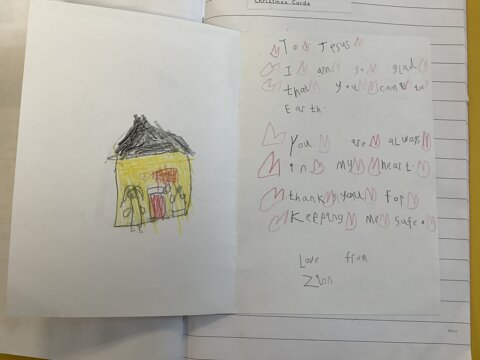 Christmas Cards
To Jesus
I am so glad
that you came to
Earth.
You are always
in my heart.
thank you for
Keeping me safe.
Love from
Zion